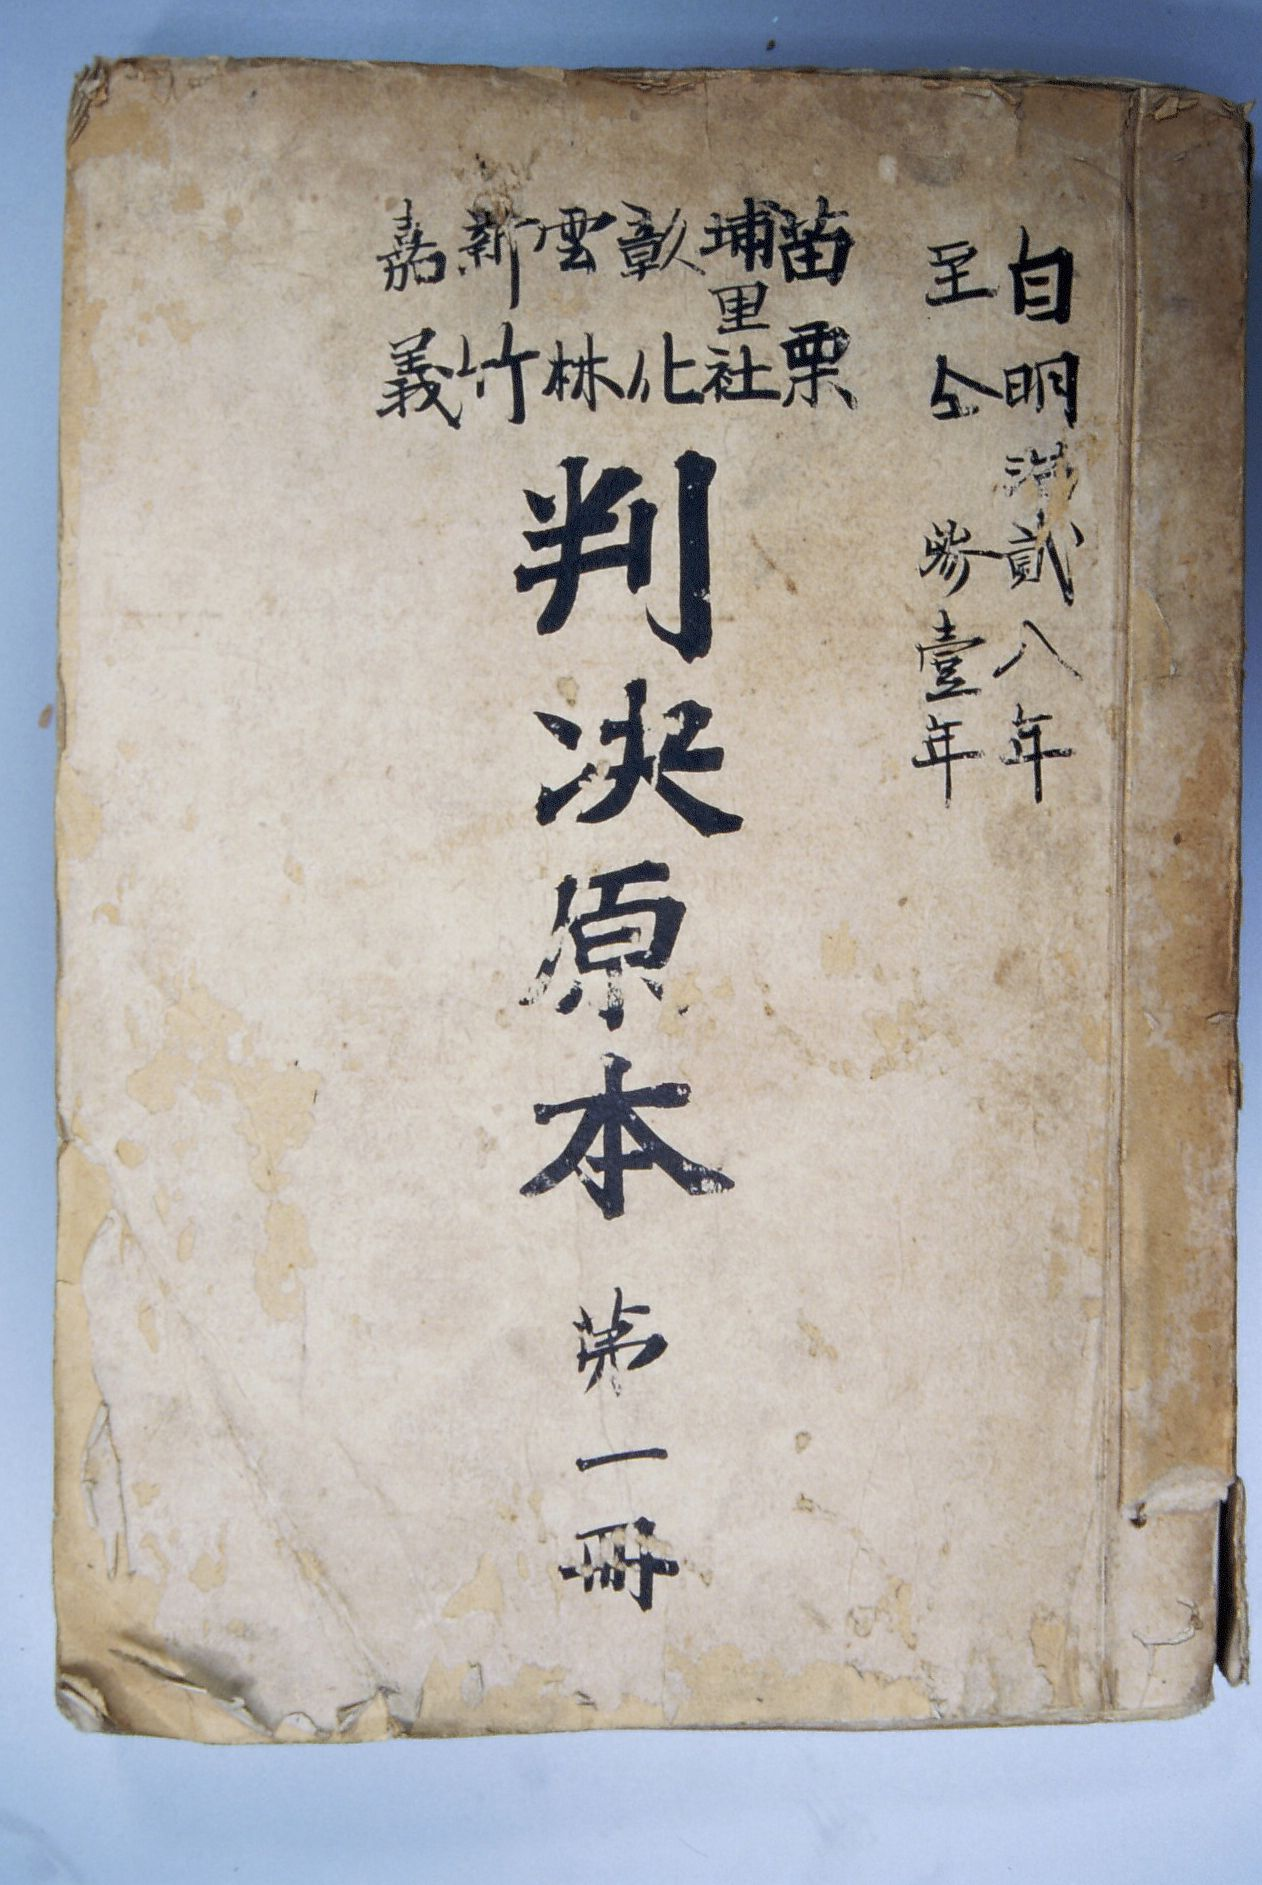 自明治貳八年
至仝參壹年
苗栗
埔里社
彰化
雲林
新竹
嘉義
判决原本第一冊